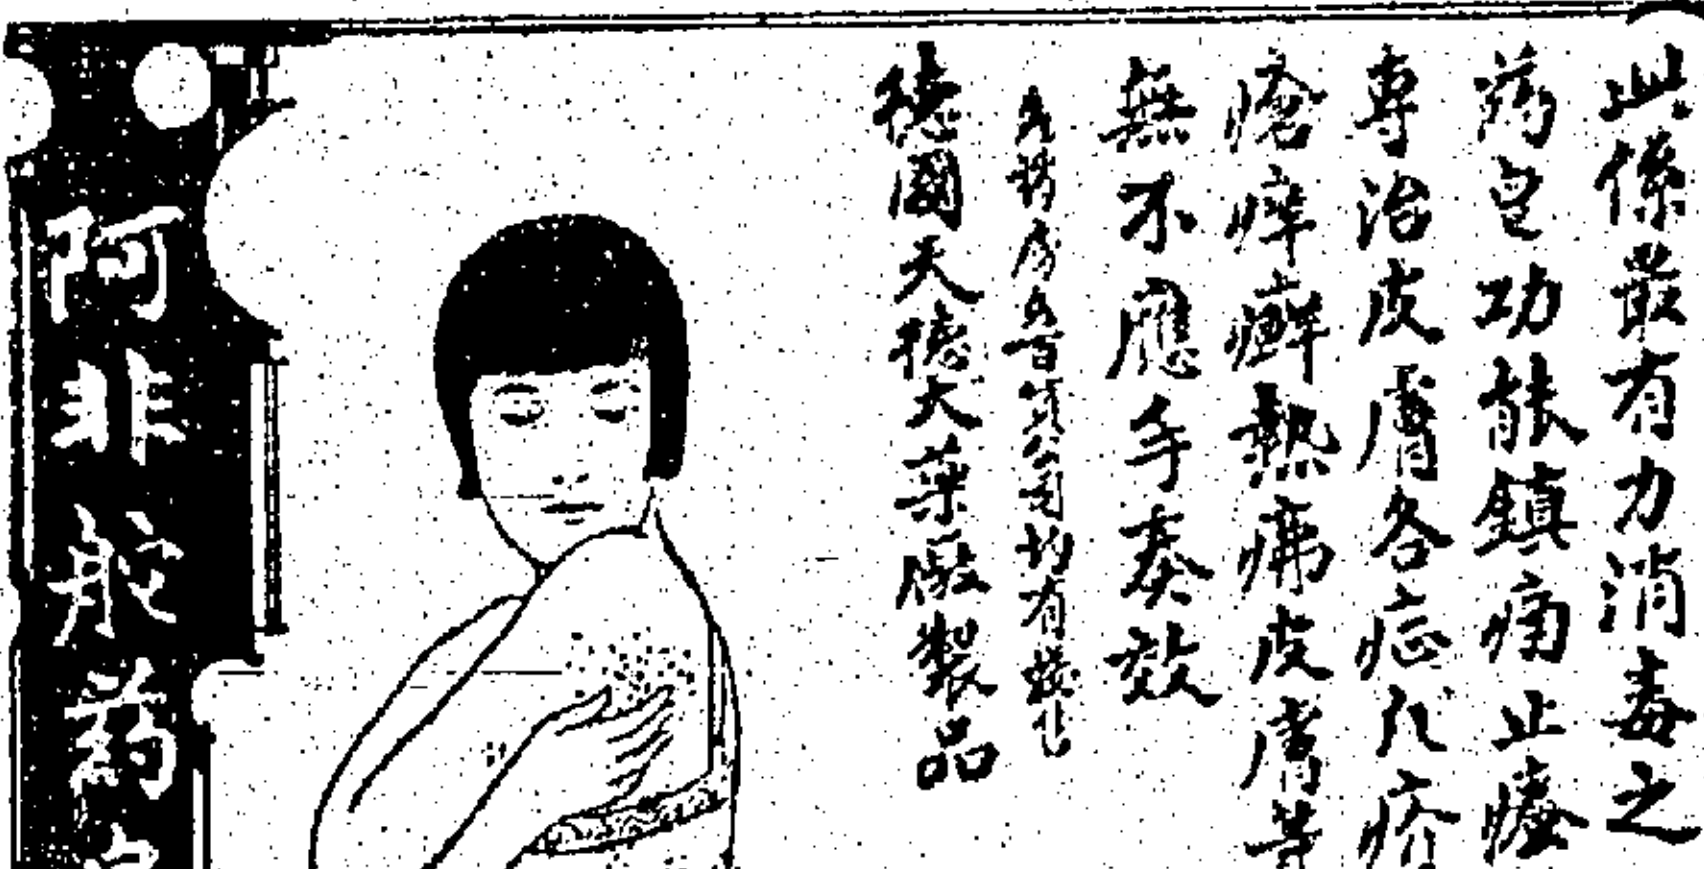 此係最有力消毒之
药皂功能鎮痛止癢
專治皮膚各症凡疥
瘡痒癬熱痱皮膚等
無不應手奏效
各药房各百貨公司均有發售
德國天德大藥廠製品
阿非舵药